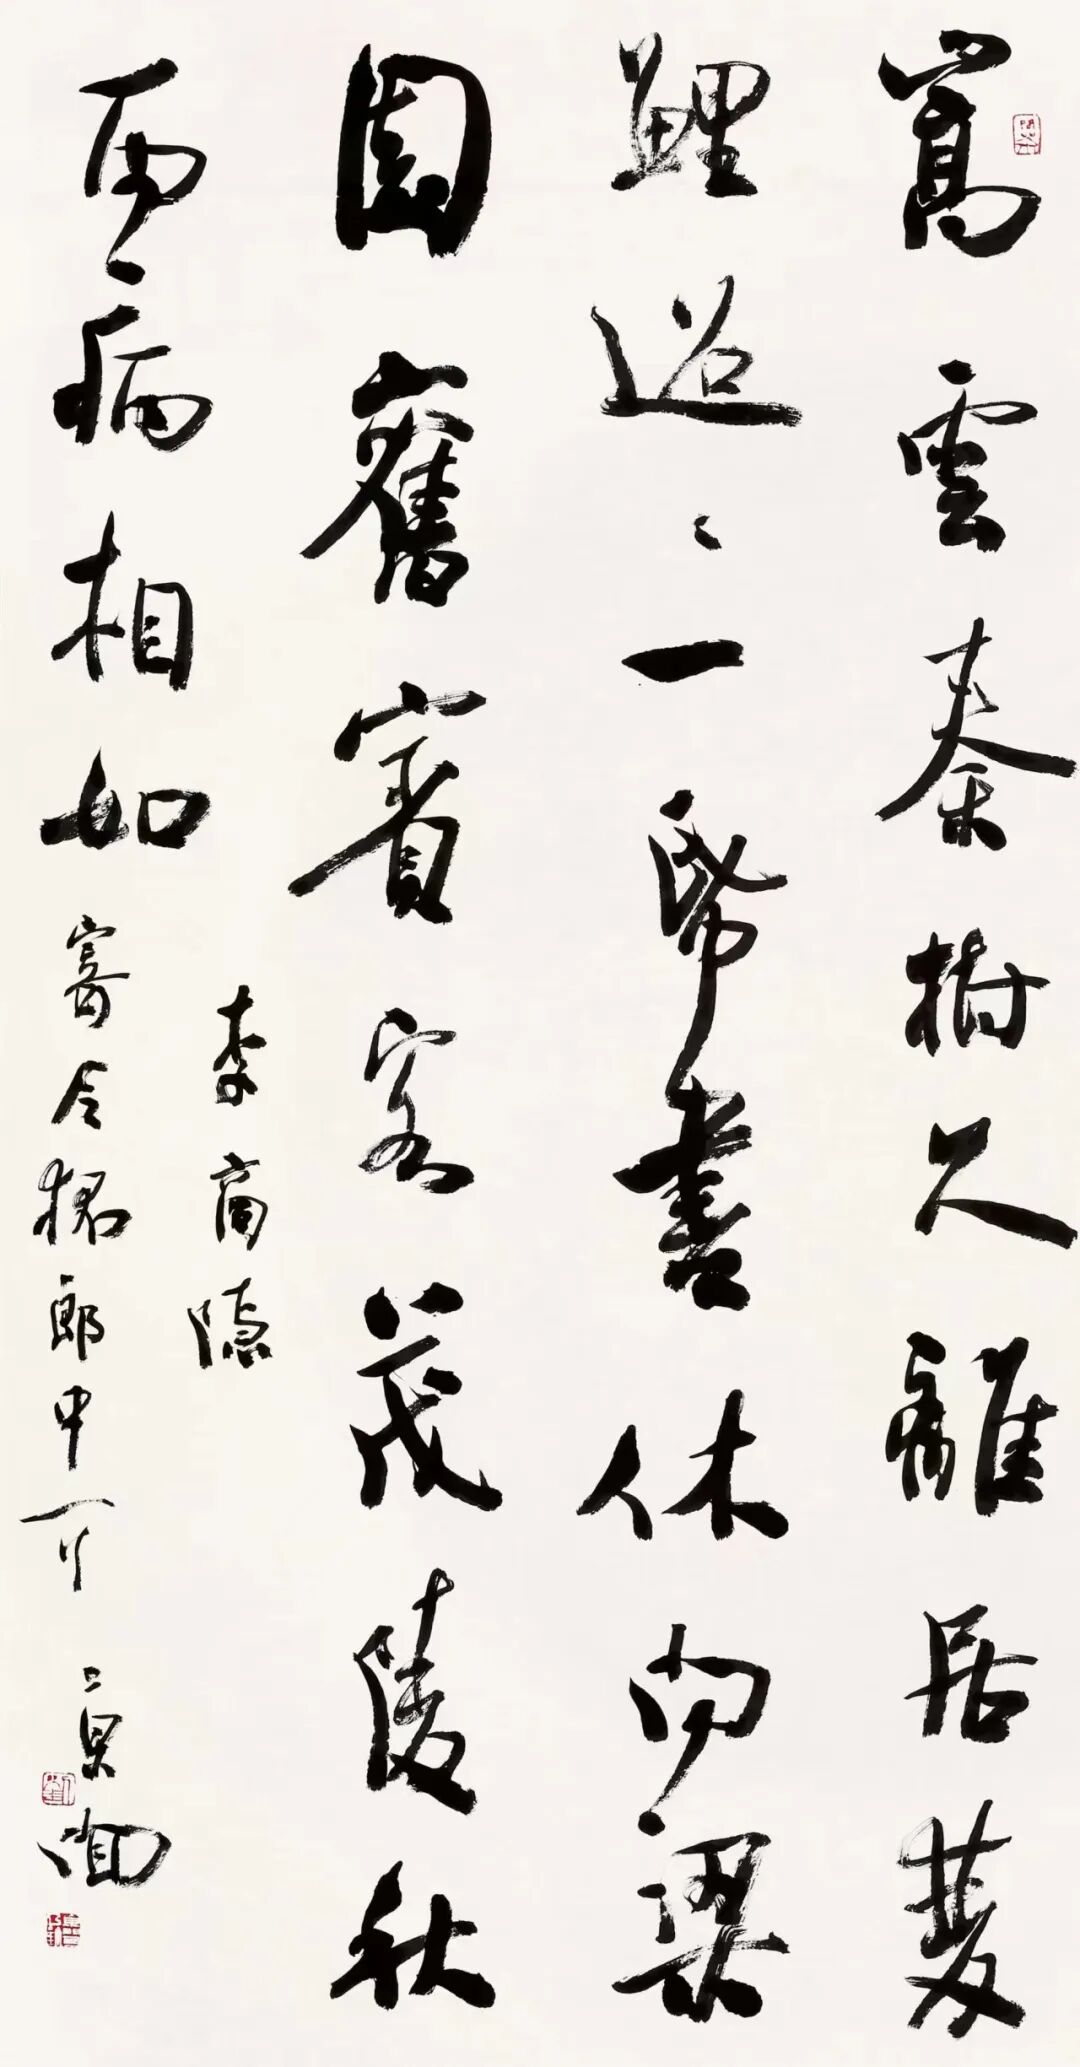 嵩雲秦樹久離居雙
鯉迢〻一帋書休問梁
園舊賓客茂陵秋
雨病相如
李商隱
寄令狐郎中